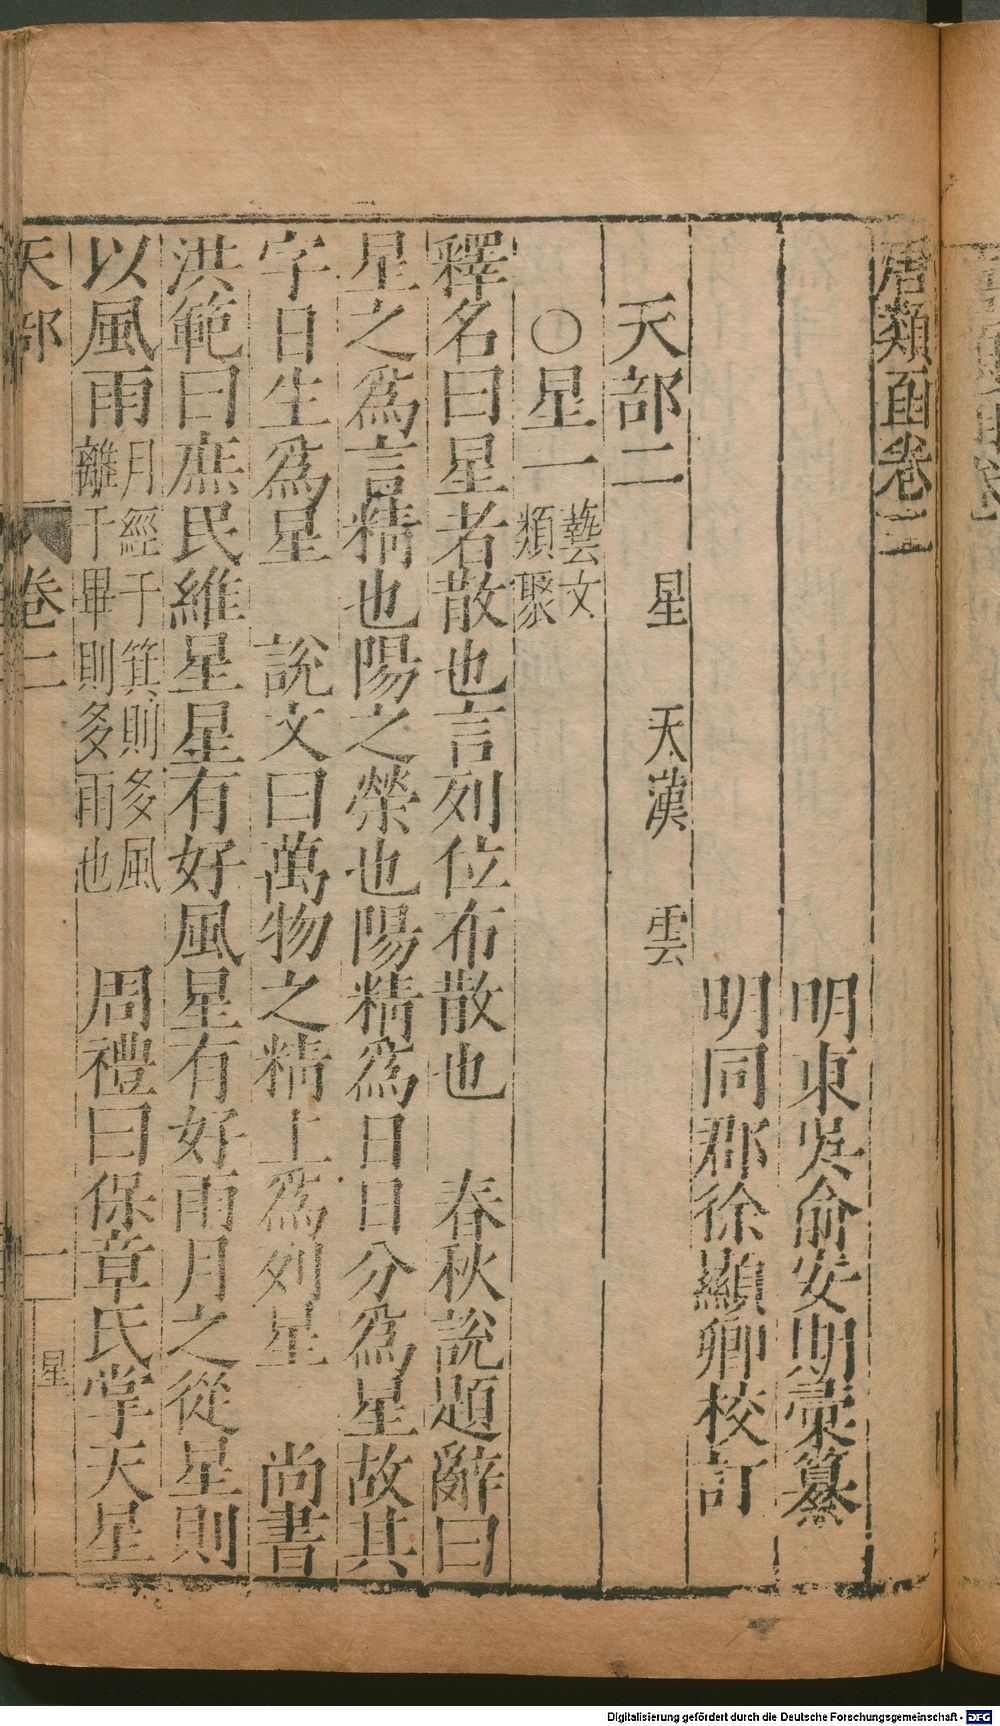 唐類函卷二
明東吳俞安期彙纂
明同郡徐顯卿校訂
天部二 星 天漢 雲
○星一 藝文類聚
釋名曰星者散也言列位布散也 春秋說題辭曰
星之爲言精也陽之榮也陽精爲日日分爲星故其
字日生爲星 說文曰萬物之精上爲列星 尚書
洪範曰庶民維星星有好風星有好雨月之從星則
以風雨 月經于箕則多風離于畢則多雨也 周禮曰保章氏掌天星
天部 卷二 一 星
Digitalisierung gefördert durch die Deutsche Forschungsgemeinschaft - DFG